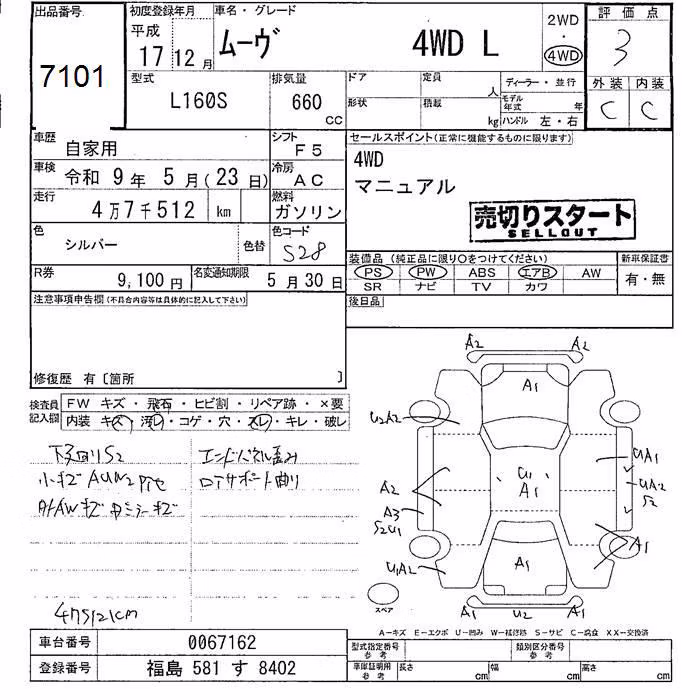 出品番号
7101
初度登録年月
平成
17年12月
車名・グレード
ムーヴ 4WD L
2WD
・
4WD
評価点
3
外装 内装
C C
型式
L160S
排気量
660
CC
ドア
定員
人
ディーラー・並行
形状
積載
kg
モデル年式
年
ハンドル 左・右
車歴
自家用
シフト
F5
車検
令和 9年 5月(23日)
冷房
AC
走行
4万7千512 km
燃料
ガソリン
色
シルバー
色替
色コード
S28
R券
9,100円
名変通知期限
5月30日
セールスポイント(正常に機能するものに限ります)
4WD
マニュアル
売切りスタート
SELLOUT
装備品 (純正品に限り○をつけてください)
PS PW ABS エアB AW
SR ナビ TV カワ
新車保証書
有・無
後日品
注意事項申告欄(不具合内容等は具体的に記入して下さい)
修復歴 有〔箇所 〕
検査員
記入欄
FW キズ・飛石・ヒビ割・リペア跡・×要
内装 キズ・汚レ・コゲ・穴・スレ・キレ・破レ
下回りS2
エンドパネル歪み
小キズAUW2
ロアサポート曲り
47512km
A2 A2
A1
U2A2
UA1
U1
A1
UA2
S2
A2
A3
S2U1
A1
U1A2
A1
A1 U2 A1
スペア
A-キズ E-エクボ U-凹み W-補修跡 S-サビ C-腐食 XX-交換済
車台番号
0067162
登録番号
福島 581 す 8402
型式指定番号
参考
類別区分番号
参考
車庫証明用
参考
長さ
cm
幅
cm
高さ
cm